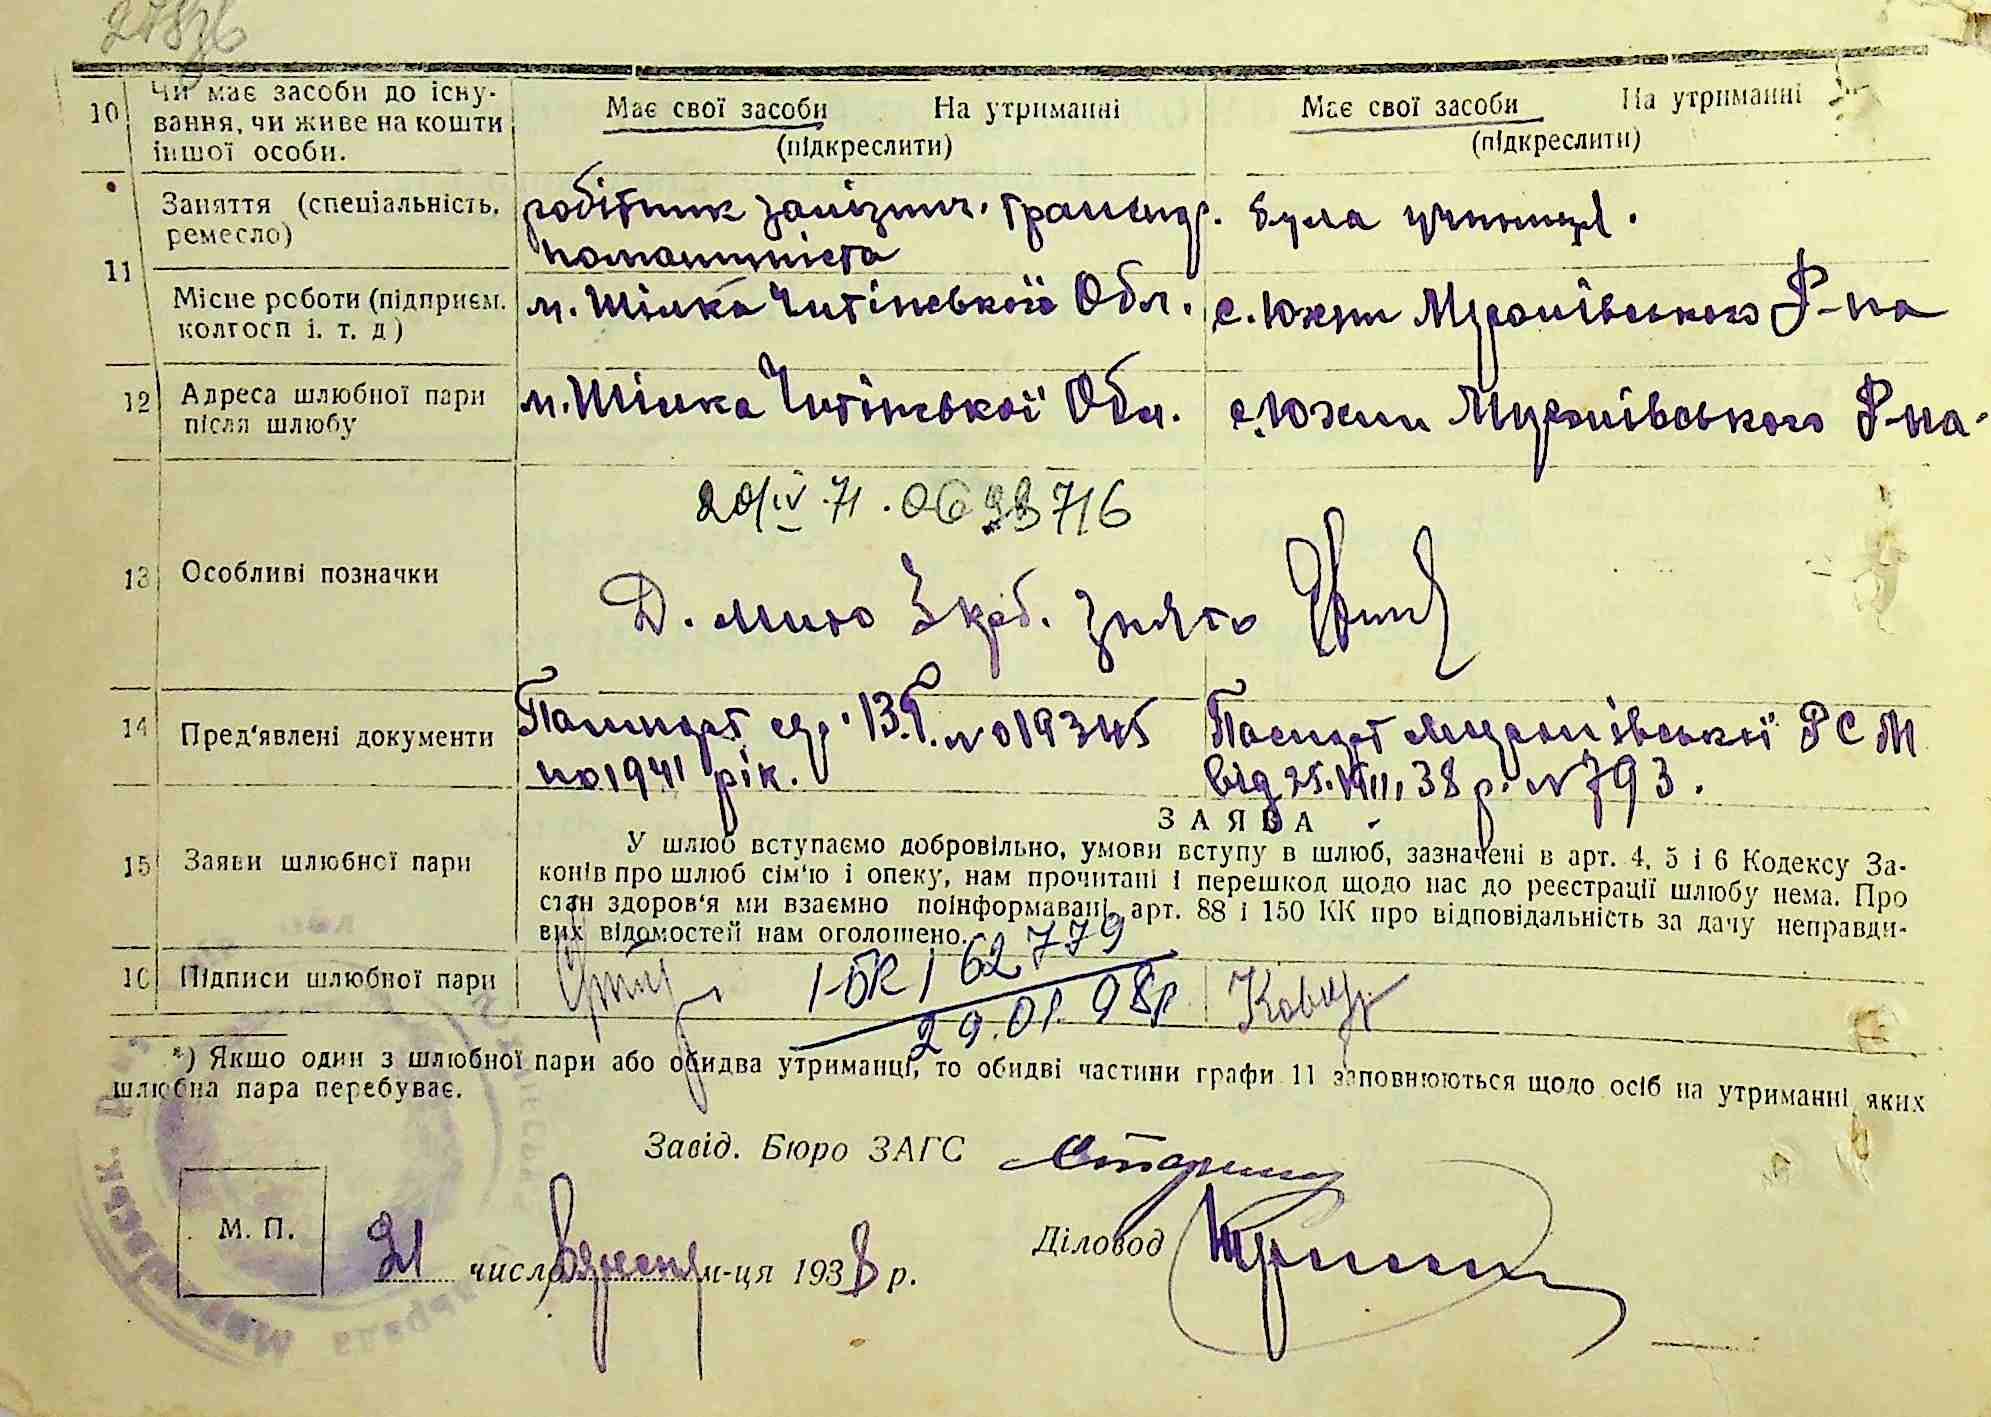 27876
10 Чи має засоби до існу-
вання, чи живе на кошти
іншої особи.
Має свої засоби На утриманні
(підкреслити)
Має свої засоби На утриманні
(підкреслити)
11 Заняття (спеціальність,
ремесло)
робітник залізнич. транспр.
Була учениця.
Місце роботи (підприєм.
колгосп і. т. д)
м. Шілка Читінської Обл.
с. Южни Муропівського Р-на
12 Адреса шлюбної пари
після шлюбу
м. Шілка Читінської Обл.
с. Южни Муропівського Р-на.
13 Особливі позначки
20/IV 71.
Д. мито 3 крб. знято
14 Пред'явлені документи
Пашпорт No 019345
по 1941 рік.
Паспорт РСМ
від 25.VIII, 38 р. № 793.
15 Заяви шлюбної пари
ЗАЯВА
У шлюб вступаємо добровільно, умови вступу в шлюб, зазначені в арт. 4, 5 і 6 Кодексу За-
конів про шлюб сім'ю і опеку, нам прочитані і перешкод щодо нас до реєстрації шлюбу нема. Про
стан здоров'я ми взаємно поінформавані, арт. 88 і 150 КК про відповідальність за дачу неправди-
вих відомостей нам оголошено.
16 Підписи шлюбної пари
І-БК 162779
29.01.98р.
*) Якщо один з шлюбної пари або обидва утриманці, то обидві частини графи 11 заповнюються щодо осіб на утриманні яких
шлюбна пара перебуває.
Завід. Бюро ЗАГС
М. П.
Діловод
21 число вересня м-ця 1938 р.